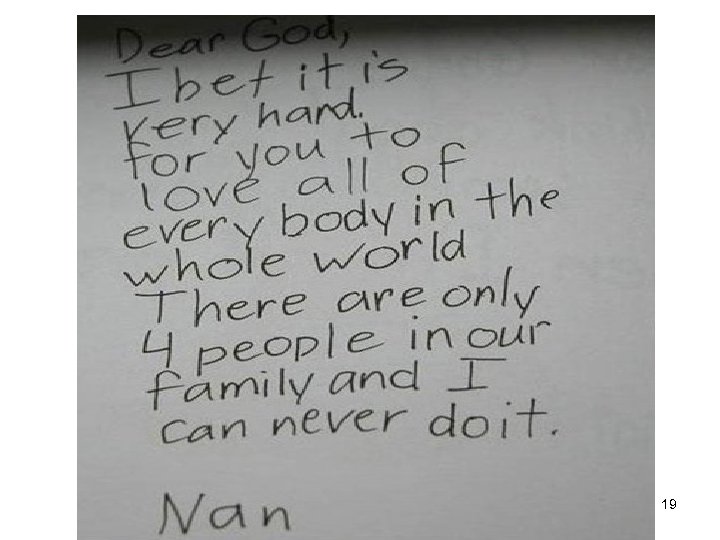 Dear God,
I bet it is
very hard.
for you to
love all of
every body in the
whole world
There are only
4 people in our
family and I
can never do it.
Nan
19